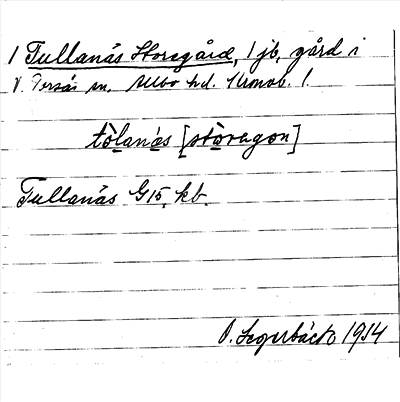 1 Tullanäs Storegård, 1 jb, gård i
V. Torsås sn, Allbo hd. Kronob. l.
tòlanǝs [stòragon]
Tullanäs G15, kb.
O. Segerbäck 1914